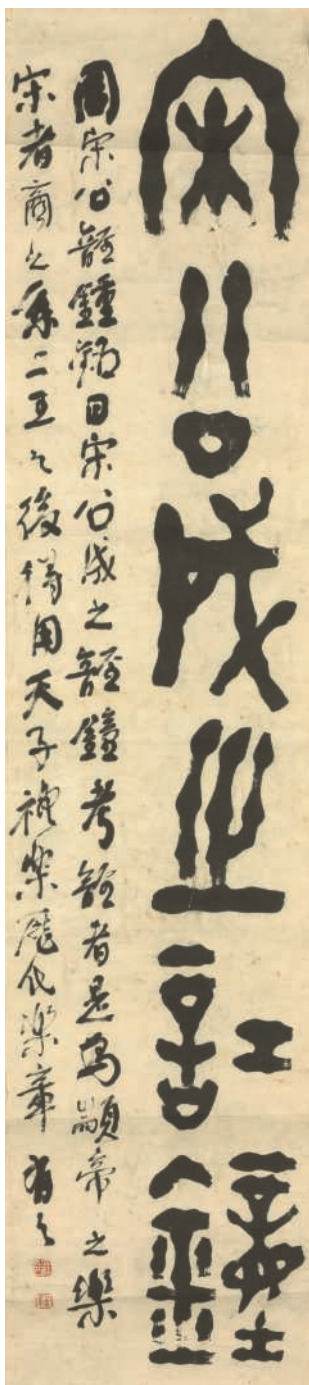 宋公成之䪫鐘
周宋公䪫鐘銘曰宋公成之䪫鐘考䪫者是為顓帝之樂
宋者商之系二王之後得用天子禮樂歷代樂章